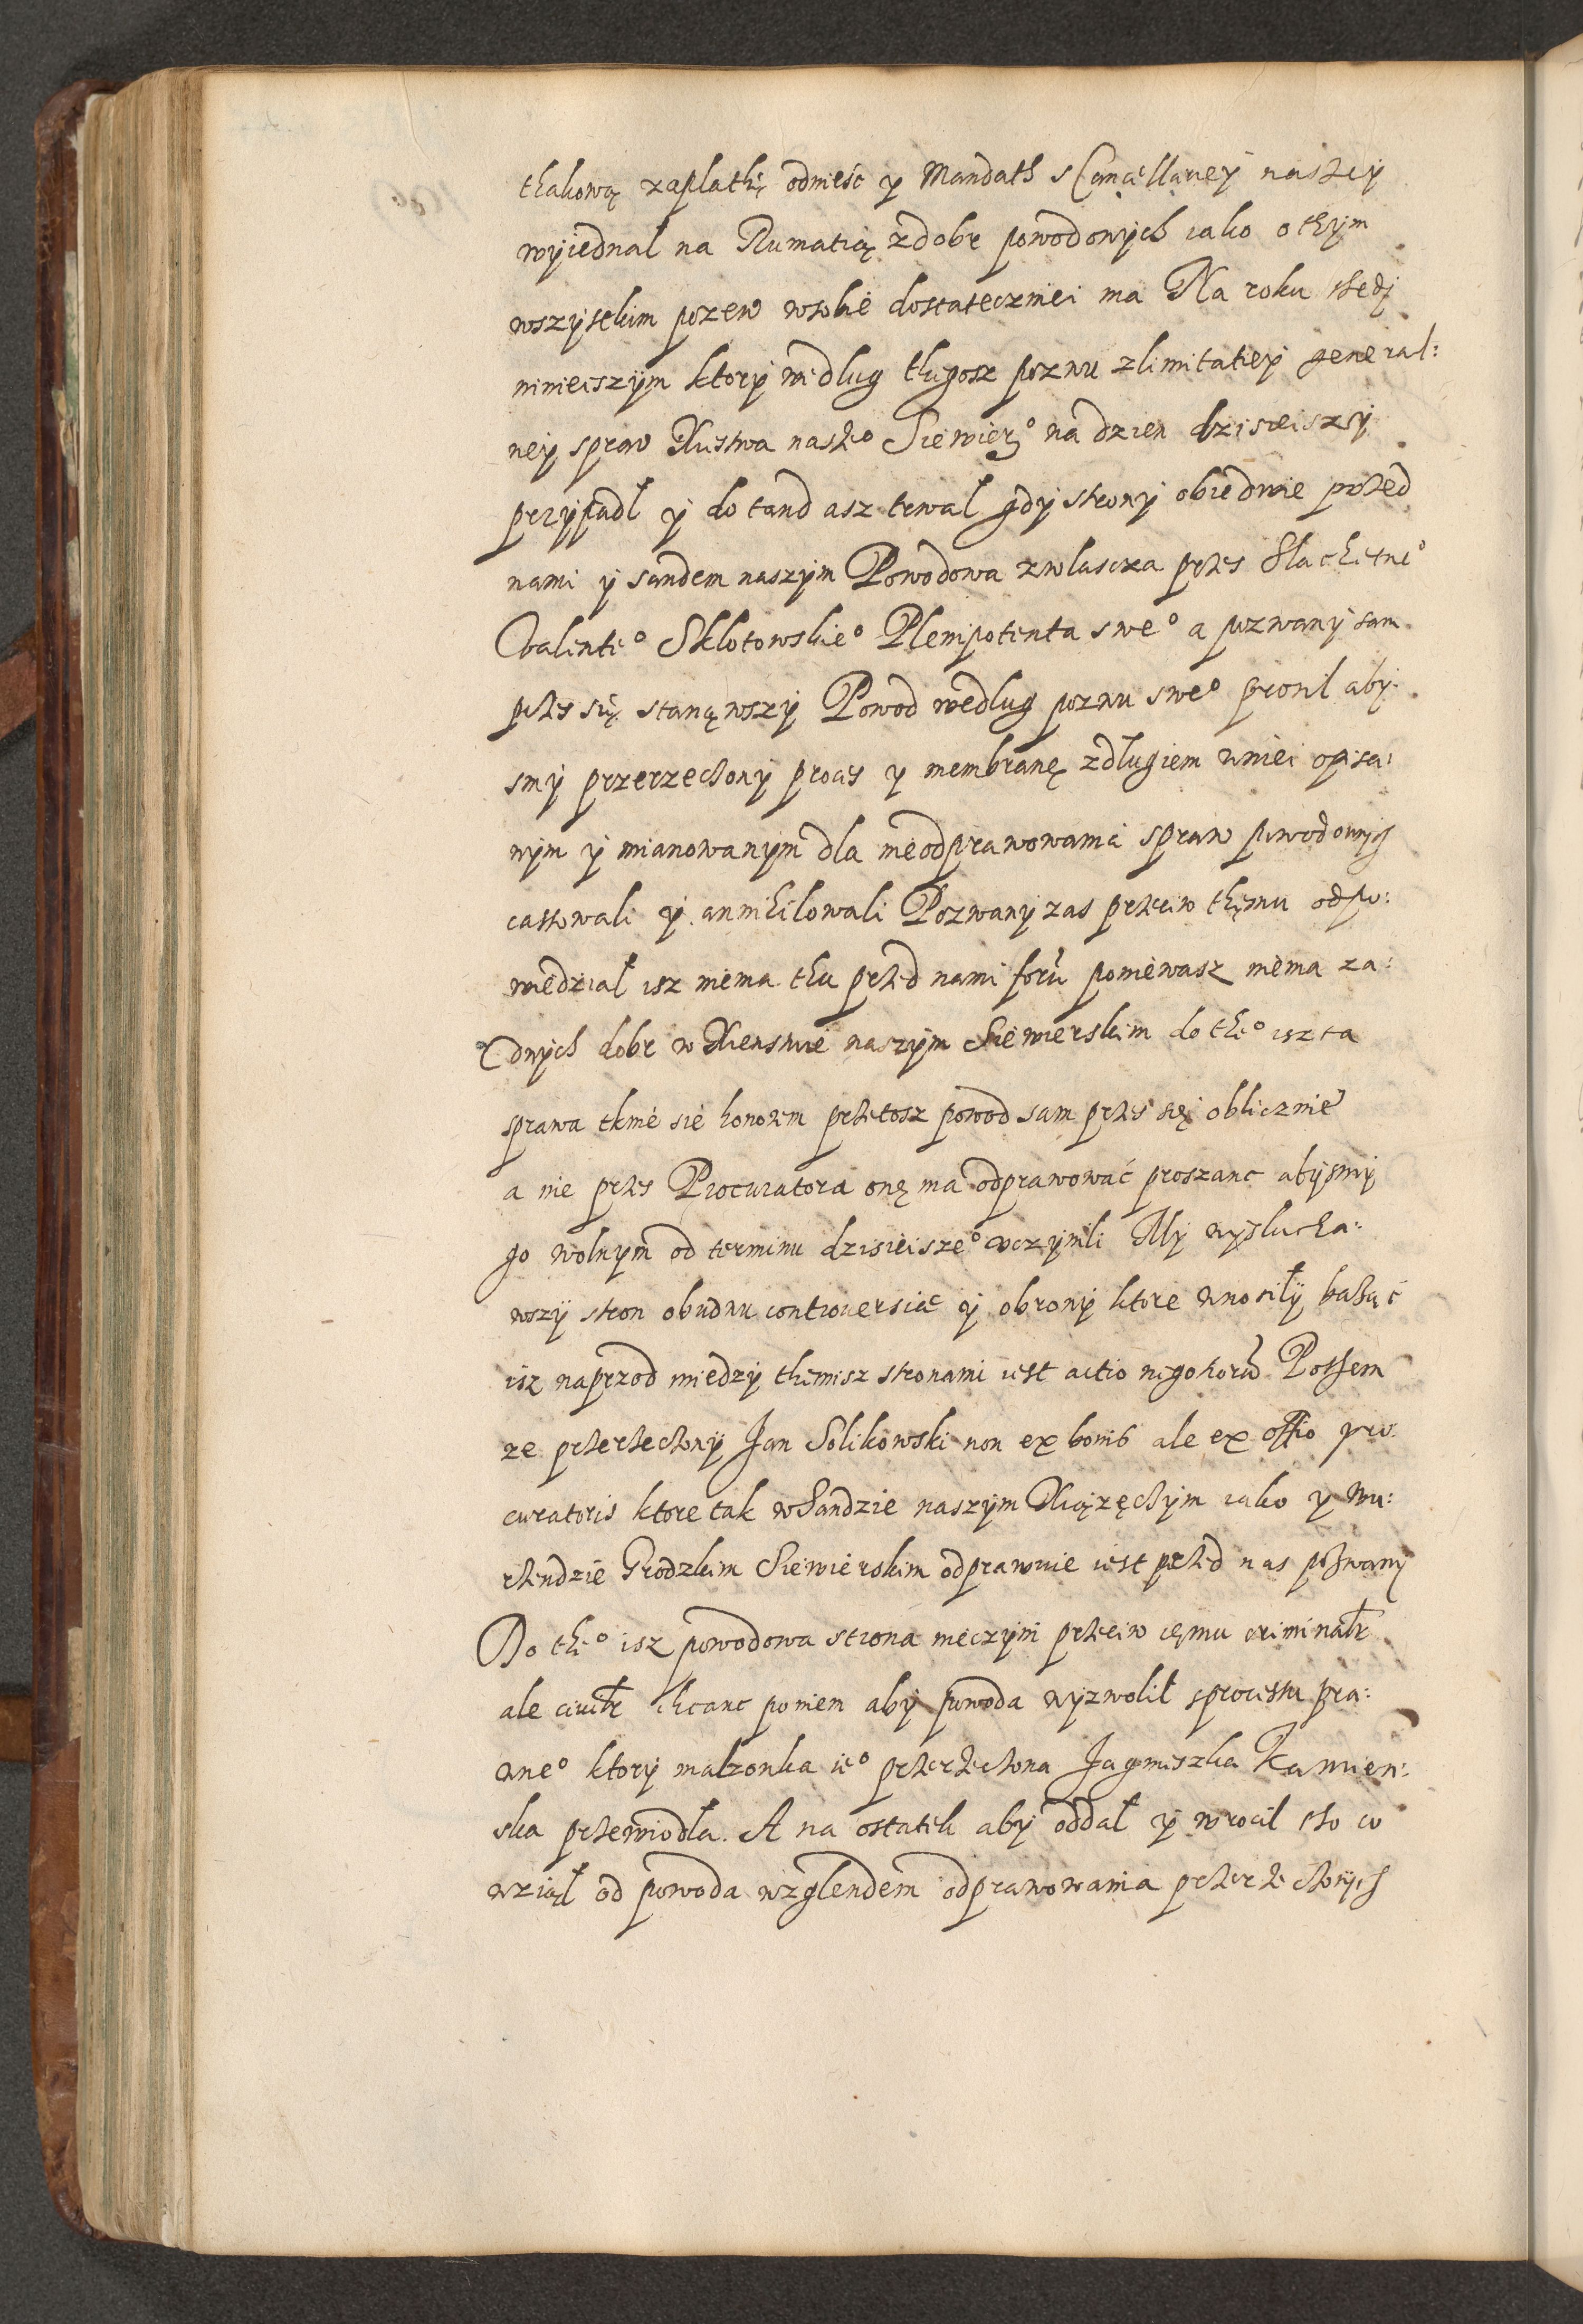 thakową zaplathę odnieść y Mandath s Cancellariey naszey
wyiednał na Rumatią z dobr powodowych iako o thym
wszysthim pozew w sobie dostateczniei ma Na roku thedy
ninieiszym ktory według thegosz pozwu z limitatiey general:
ney spraw Xiestwa naszeº Siewierº na dzien dzisieiszy
przypadł y do tand asz trwał gdy strony obiedwie przed
nami y sandem naszym Powodowa zwlascza przes Slachetneº
Valenteº Sklotowskieº Plenipotenta sweº a pozwany sam
przes się stanąwszy Powod według pozwu sweº prosił aby:
smy przerzeczony proces y membranę z długiem w niei opisa:
nym y mianowanym dla nieodprawowania spraw powodowych
cassowali y annihilowali Pozwany zas przeciw themu odpo:
wiedział isz niema thu przed nami forū poniewasz niema za:
dnych dobr w Xienstwie naszym Siewierskim do theº isz ta
sprawa tknie sie honorem przetosz powod sam przes się oblicznie
a nie przes Procuratora onę ma odprawować proszanc abysmy
go wolnym od terminu dzisieiszeº uczynili My wysłucha:
wszy stron obudwu controversie y obrony ktore wnosiły bacząc
isz naprzod miedzy themisz stronami iest actio negotiorū Pothem
ze przerzeczony Jan Solikowski non ex bonis ale ex offio pro:
curatoris ktore tak w Sandzie naszym Xiążęcym iako y w u:
rzendzie Grodzkim Siewierskim odprawuie iest przed nas pozwany
Do theº isz powodowa strona nieczyni przeciw iemu criminalr
ale civilr chcanc po niem aby powoda wyzwolił s processu pra:
wneº ktory małzonka ieº przerzeczona Jagnieszka Kamien:
ska przewiodła. A na ostatek aby oddał y wrocił tho co
wziął od powoda wzglendem odprawowania przerzeczonych